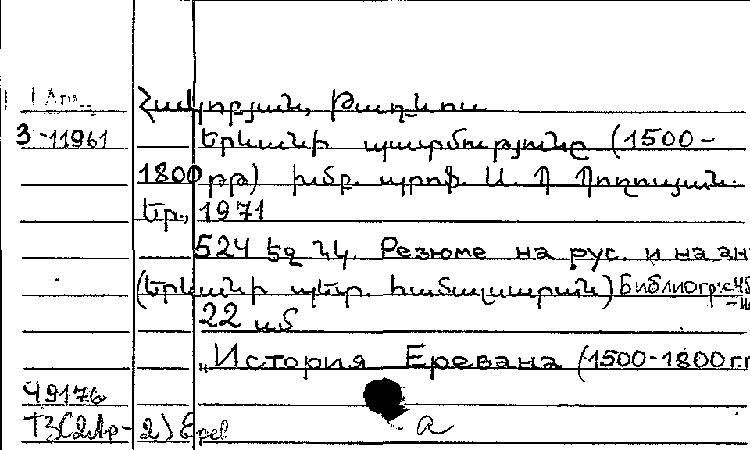 Հակոբյան, Թադևոս
3-11961 Երևանի պատմությունը (1500-
1800 թթ) խմբ. պրոֆ. Ա. Պ Պողոսյան.
Եր., 1971
524 էջ նկ. Резюме на рус. и на ан
(Երևանի պետ. համալսարան) Библиогр: с 48
22 սմ
„История Еревана (1500-1800 гг
49176
Т3(2Ар-2) Ерев а